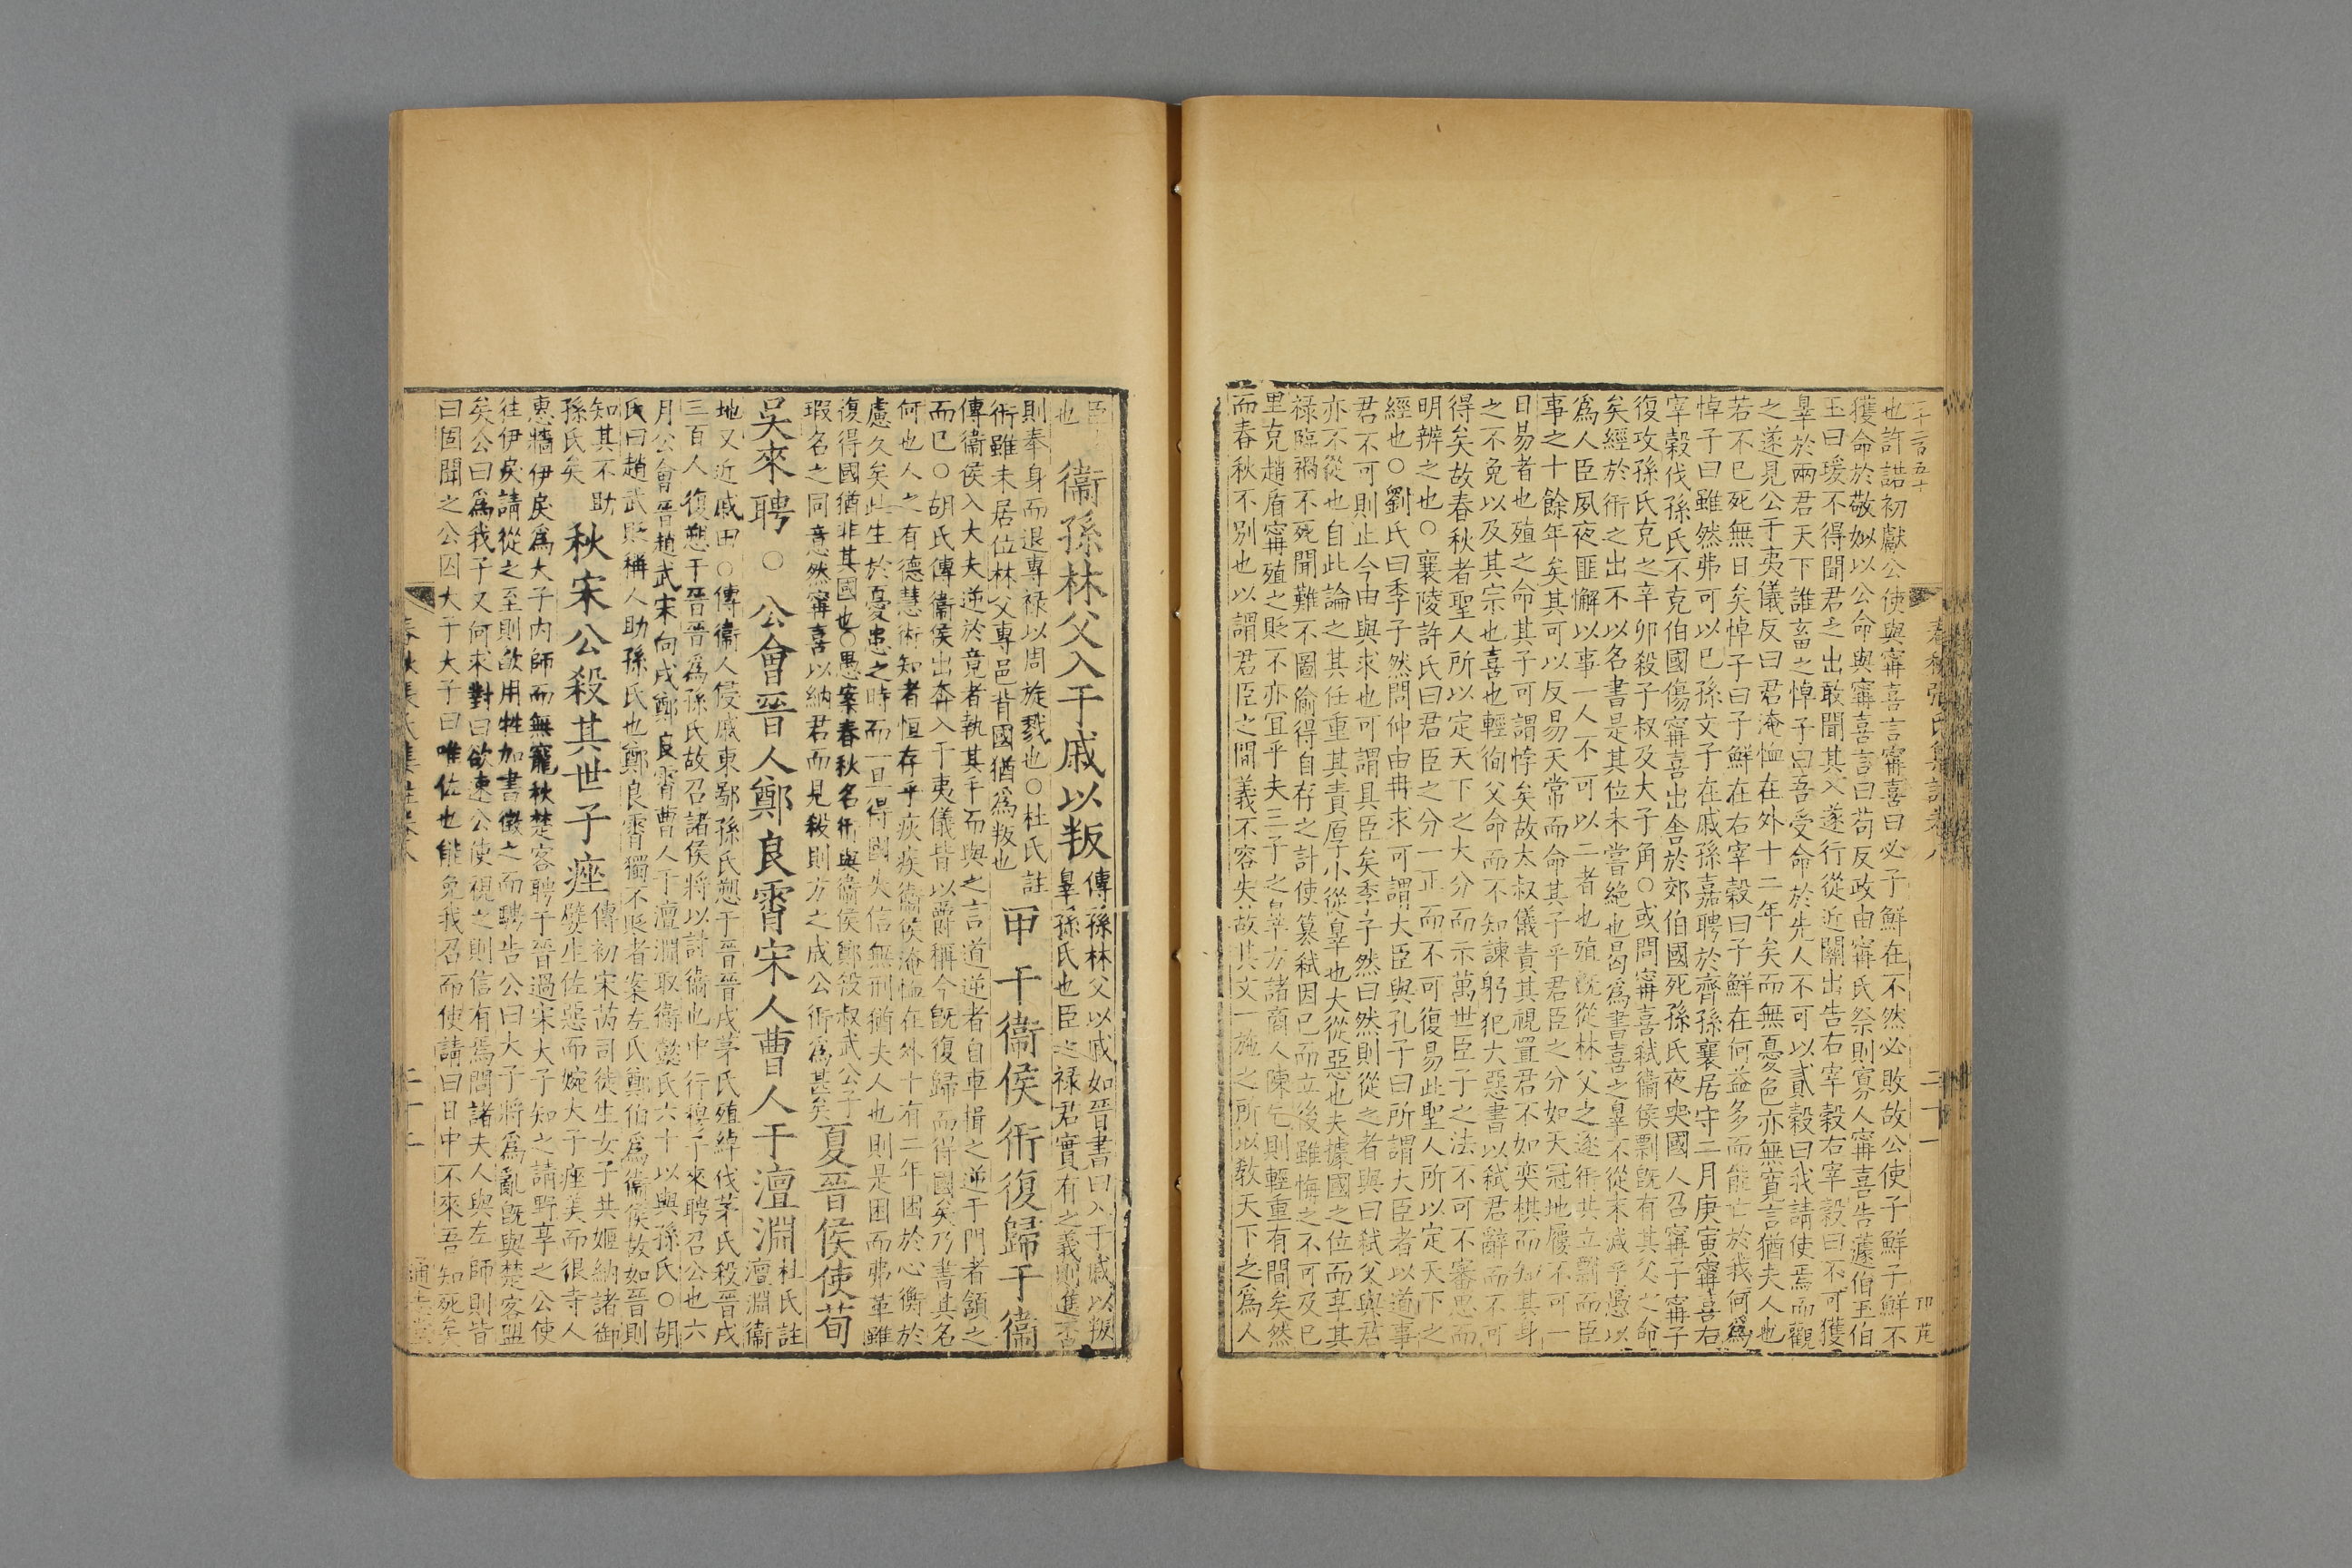 二十言五十
春秋張氏集註卷八
二十一
也許諾初獻公使與甯喜言甯喜曰必子鮮在不然必敗故公使子鮮子鮮不
獲命於敬姒以公命與甯喜言曰苟反政由甯氏祭則寡人甯喜告蘧伯玉伯
玉曰瑗不得聞君之出敢聞其入遂行從近關出告右宰穀右宰穀曰不可獲
辠於兩君天下誰畜之悼子曰吾受命於先人不可以貳穀曰我請使焉而觀
之遂見公于夷儀反曰君淹恤在外十二年矣而無憂色亦無寬言猶夫人也
若不已死無日矣悼子曰子鮮在右宰穀曰子鮮在何益多而能亡於我何爲
悼子曰雖然弗可以已孫文子在戚孫嘉聘於齊孫襄居守二月庚寅甯喜右
宰穀伐孫氏不克伯國傷甯喜出舍於郊伯國死孫氏夜哭國人召甯子甯子
復攻孫氏克之辛卯殺子叔及大子角○或問甯喜弒衞侯剽旣有其父之命
矣經於衎之出不以名書是其位未嘗絕也曷爲書喜之辠不從末減乎愚以
爲人臣夙夜匪懈以事一人不可以二者也殖旣從林父之逐衎共立剽而臣
事之十餘年矣其可以反易天常而命其子乎君臣之分如天冠地履不可一
日易者也殖之命其子可謂悖矣故太叔儀責其視置君不如奕棋而知其身
之不免以及其宗也喜也輕徇父命而不知諫躬犯大惡書以弒君辭而不可
得矣故春秋者聖人所以定天下之大分而示萬世臣子之法不可不審思而
明辨之也○襄陵許氏曰君臣之分一正而不可復易此聖人所以定天下之
經也○劉氏曰季子然問仲由冉求可謂大臣與孔子曰所謂大臣者以道事
君不可則止今由與求也可謂具臣矣季子然曰然則從之者與曰弒父與君
亦不從也自此論之其任重其責厚小從辠也大從惡也夫據國之位而享其
祿臨禍不死聞難不圖偷得自存之計使篡弒因已而立後雖悔之不可及已
里克趙盾甯殖之貶不亦冝乎夫三子之辠方諸商人陳乞則輕重有間矣然
而春秋不別也以謂君臣之間義不容失故其文一施之所以教天下之爲人
臣
也 衞孫林父入于戚以叛 傳孫林父以戚如晉書曰入于戚以叛
辠孫氏也臣之祿君實有之義則進否
則奉身而退專祿以周旋戮也○杜氏註
衎雖未居位林父專邑背國猶爲叛也 甲午衞侯衎復歸于衞
傳衞侯入大夫逆於竟者執其手而與之言道逆者自車揖之逆于門者頷之
而已○胡氏傳衞侯出奔入于夷儀皆以爵稱今旣復歸而得國矣乃書其名
何也人之有德慧術知者恒存乎疢疾衞侯淹恤在外十有二年困於心衡於
慮久矣此生於憂患之時而一旦得國失信無刑猶夫人也則是困而弗革雖
復得國猶非其國也○愚案春秋名衎與衞侯鄭殺叔武公子
瑕名之同意然甯喜以納君而見殺則方之成公衎爲甚矣 夏晉侯使荀
吳來聘○公會晉人鄭良霄宋人曹人于澶淵 杜氏註
澶淵衞
地又近戚田○傳衞人侵戚東鄙孫氏愬于晉晉戍茅氏殖綽伐茅氏殺晉戍
三百人復愬于晉晉爲孫氏故召諸侯將以討衞也中行穆子來聘召公也六
月公會晉趙武宋向戌鄭良霄曹人于澶淵取衞懿氏六十以與孫氏○胡
氏曰趙武貶稱人助孫氏也鄭良霄獨不貶者案左氏鄭伯爲衞侯故如晉則
知其不助
孫氏矣 秋宋公殺其世子痤 傳初宋芮司徒生女子共姬納諸御
嬖生佐惡而婉大子痤美而很寺人
惠牆伊戾爲大子內師而無寵秋楚客聘于晉過宋大子知之請野享之公使
往伊戾請從之至則欿用牲加書徵之而聘告公曰大子將爲亂旣與楚客盟
矣公曰爲我子又何求對曰欲速公使視之則信有焉問諸夫人與左師則皆
曰固聞之公囚大子大子曰唯佐也能免我召而使請曰日中不來吾知死矣
春秋張氏集註卷八
二十二
通志堂